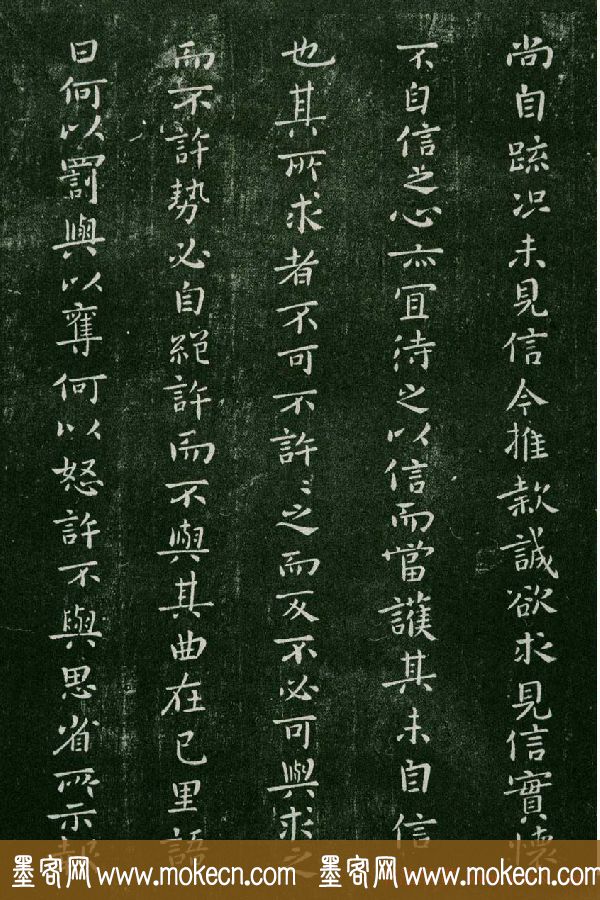 尚自疏况未見信今推款誠欲求見信實懷
不自信之心亦宜待之以信而當護其未自信
也其所求者不可不許許之而反不必可與求之
而不許勢必自絕許而不與其曲在己里語
曰何以罰與以奪何以怒許不與思省所示報
墨客网 www.mokecn.com 墨客网 www.mokecn.com